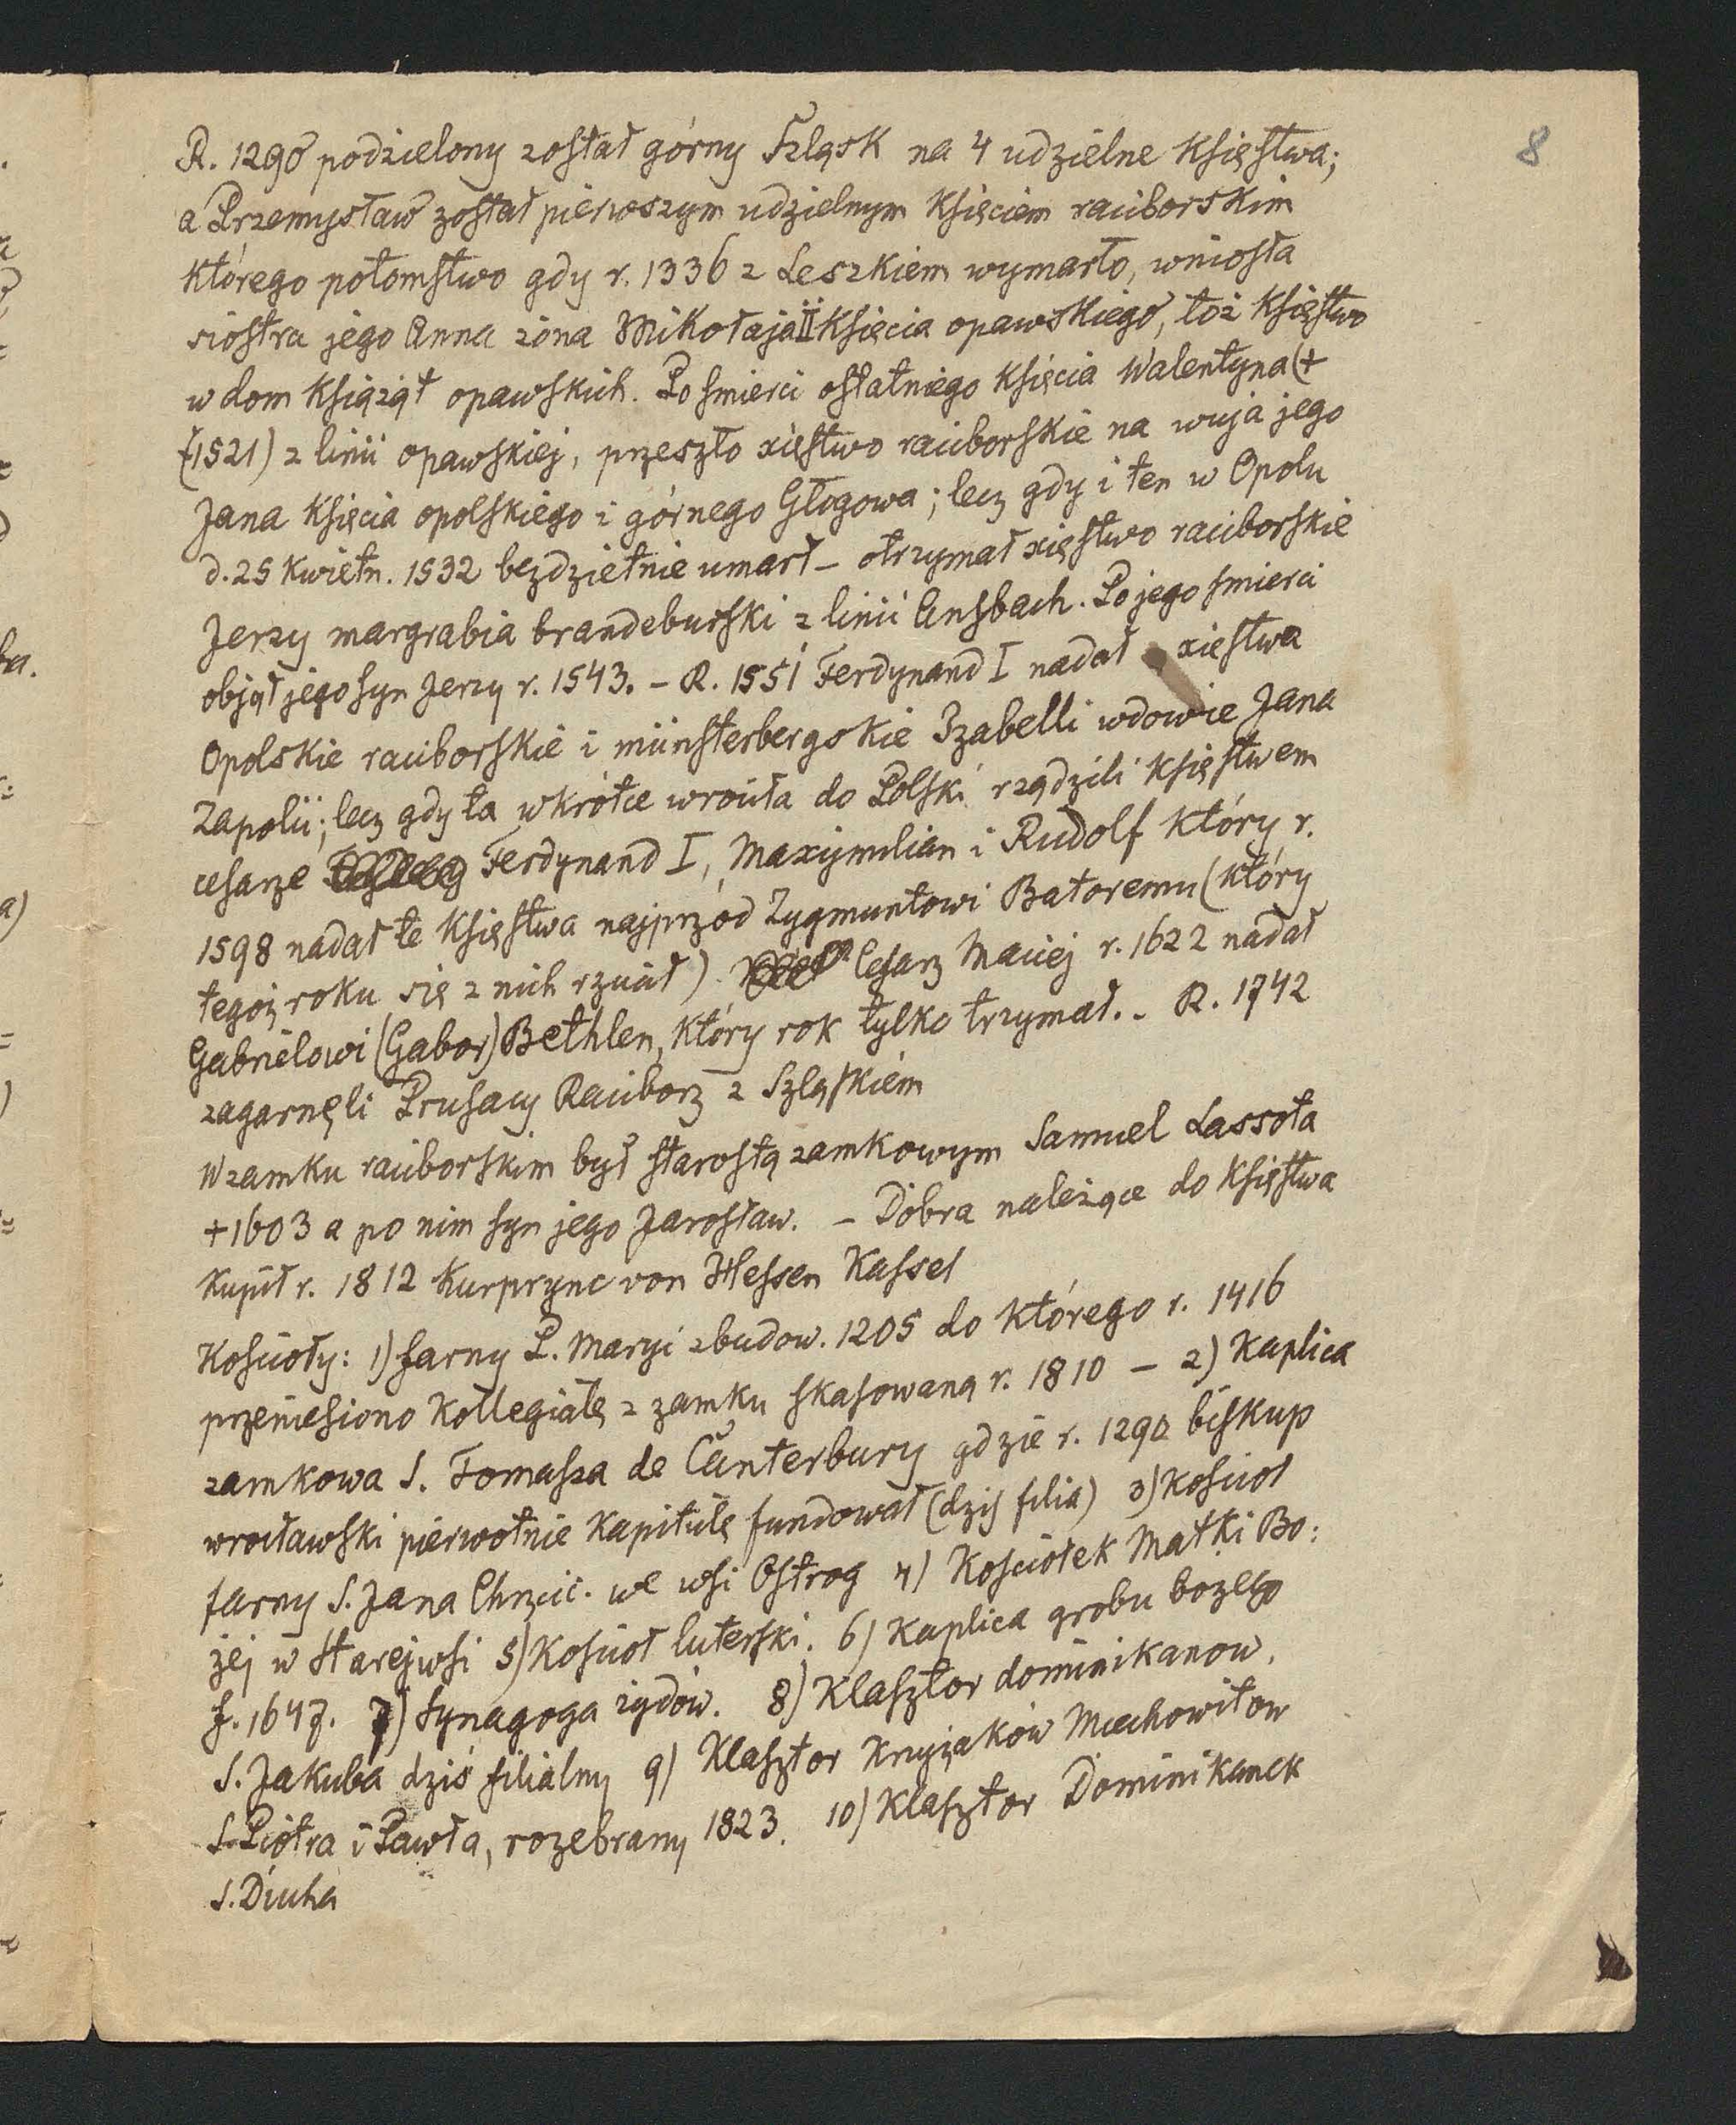 8
R. 1290 podzielony został górny Szląsk na 4 udzielne Księstwa;
a Przemysław został pierwszym udzielnym Księciem raciborskim
którego potomstwo gdy r. 1336 z Leszkiem wymarło, wniosła
siostra jego Anna żona Mikołaja II Księcia opawskiego, toż Księstwo
w dom Książąt opawskich. Po śmierci ostatniego Księcia Walentyna (+
(1521) z linii opawskiej, przeszło xięstwo raciborskie na wuja jego
Jana Księcia opolskiego i górnego Głogowa; lecz gdy i ten w Opolu
d. 25 Kwietn. 1532 bezdzietnie umarł – otrzymał xięstwo raciborskie
Jerzy margrabia brandeburski z linii Ansbach. Po jego śmierci
objął jego syn Jerzy r. 1543. – R. 1551 Ferdynand I nadał xięstwa
Opolskie raciborskie i münsterbergskie Izabelli wdowie Jana
Zapolii; lecz gdy ta wkrótce wróciła do Polski rządzili Księstwem
cesarze Ferdynand I, Maxymilian i Rudolf który r.
1598 nadał te Księstwa najprzód Zygmuntowi Batoremu (który
tegoż roku się z nich rzucił) Cesarz Maciej r. 1622 nadał
Gabrielowi (Gabor) Bethlen, który rok tylko trzymał. – R. 1742
zagarnęli Prusacy Raciborz z Szląskiem
W zamku raciborskim był starostą zamkowym Samuel Lassota
+ 1603 a po nim syn jego Jarosław. – Dobra należące do Księstwa
Kupił r. 1812 Kurprync von Hessen Kassel
Kościoły: 1) farny P. Maryi zbudow. 1205 do którego r. 1416
przeniesiono Kollegiatę z zamku skasowaną r. 1810 – 2) Kaplica
zamkowa S. Tomasza de Canterbury gdzie r. 1290 biskup
wrocławski pierwotnie Kapitułę fundował (dziś filia) 3) Kościoł
farny S. Jana Chrzcic. we wsi Ostrog 4) Kościołek Matki Bo:
żej w Starejwsi 5) Kościoł luterski. 6) Kaplica grobu bożego
f. 1647. 7) Synagoga żydów. 8) Klasztor dominikanow.
S. Jakuba dziś filialny 9) Klasztor Krzyżaków Miechowitow
S. Piotra i Pawła, rozebrany 1823. 10) Klasztor Dominikanek
S. Ducha